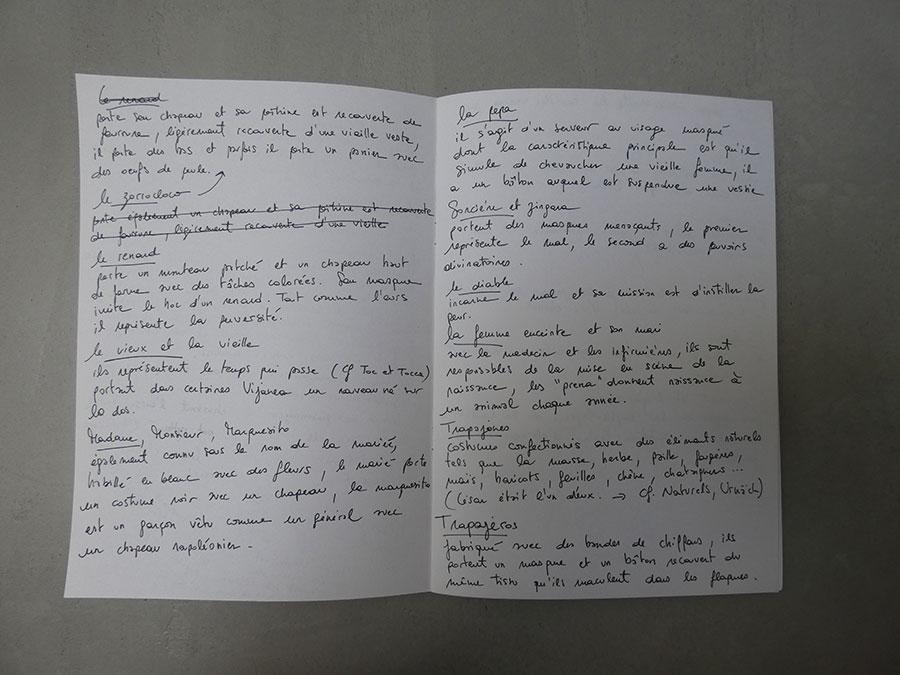 le renard
porte son chapeau et sa poitrine est recouverte de
fourrure, légèrement recouverte d'une vieille veste,
il porte des bas et parfois il porte un panier avec
des oeufs de poule.
le zorrocloco
porte également un chapeau et sa poitrine est recouverte
de fourrure, légèrement recouverte d'une vieille
le renard
porte un manteau et un chapeau haut
de forme avec des tâches colorées. Son masque
imite le d'un renard. Tout comme l'ours
il représente la perversité.
le vieux et la vieille
ils représentent le temps qui passe (cf Toc et Tocca)
portant dans certaines Vijanera un nouveau né sur
le dos.
Madame, Monsieur, Marquesito
également connu sous le nom de la mariée,
habillé en blanc avec des fleurs, le marié porte
un costume noir avec un chapeau, la marquesito
est un garçon vêtu comme un général avec
un chapeau napoléonien.
la pepa
il s'agit d'un serveur au visage masqué
dont la caractéristique principale est qu'il
simule de chevaucher une vieille femme, il
a un bâton auquel est suspendue une vessie
Sorcière et Zingara
portent des masques menaçants, le premier
représente le mal, le second a des pouvoirs
divinatoires.
le diable
incarne le mal et sa mission est d'instiller la
peur.
la femme enceinte et son mari
avec la medecin et les infirmières, ils sont
responsables de la mise en scène de la
naissance, les "prena" donnent naissance à
un animal chaque année.
Trapajones
costumes confectionnés avec des éléments naturels
tels que la mousse, herbe, paille, fougères,
maïs, haricots, feuilles, chêne, chataigners...
(César était l'un d'eux. → cf. Naturels, Urnäsch)
Trapajeros
fabriqué avec des bandes de chiffons, ils
portent un masque et un bâton recouvert du
même tissu qu'ils maculent dans les flaques.